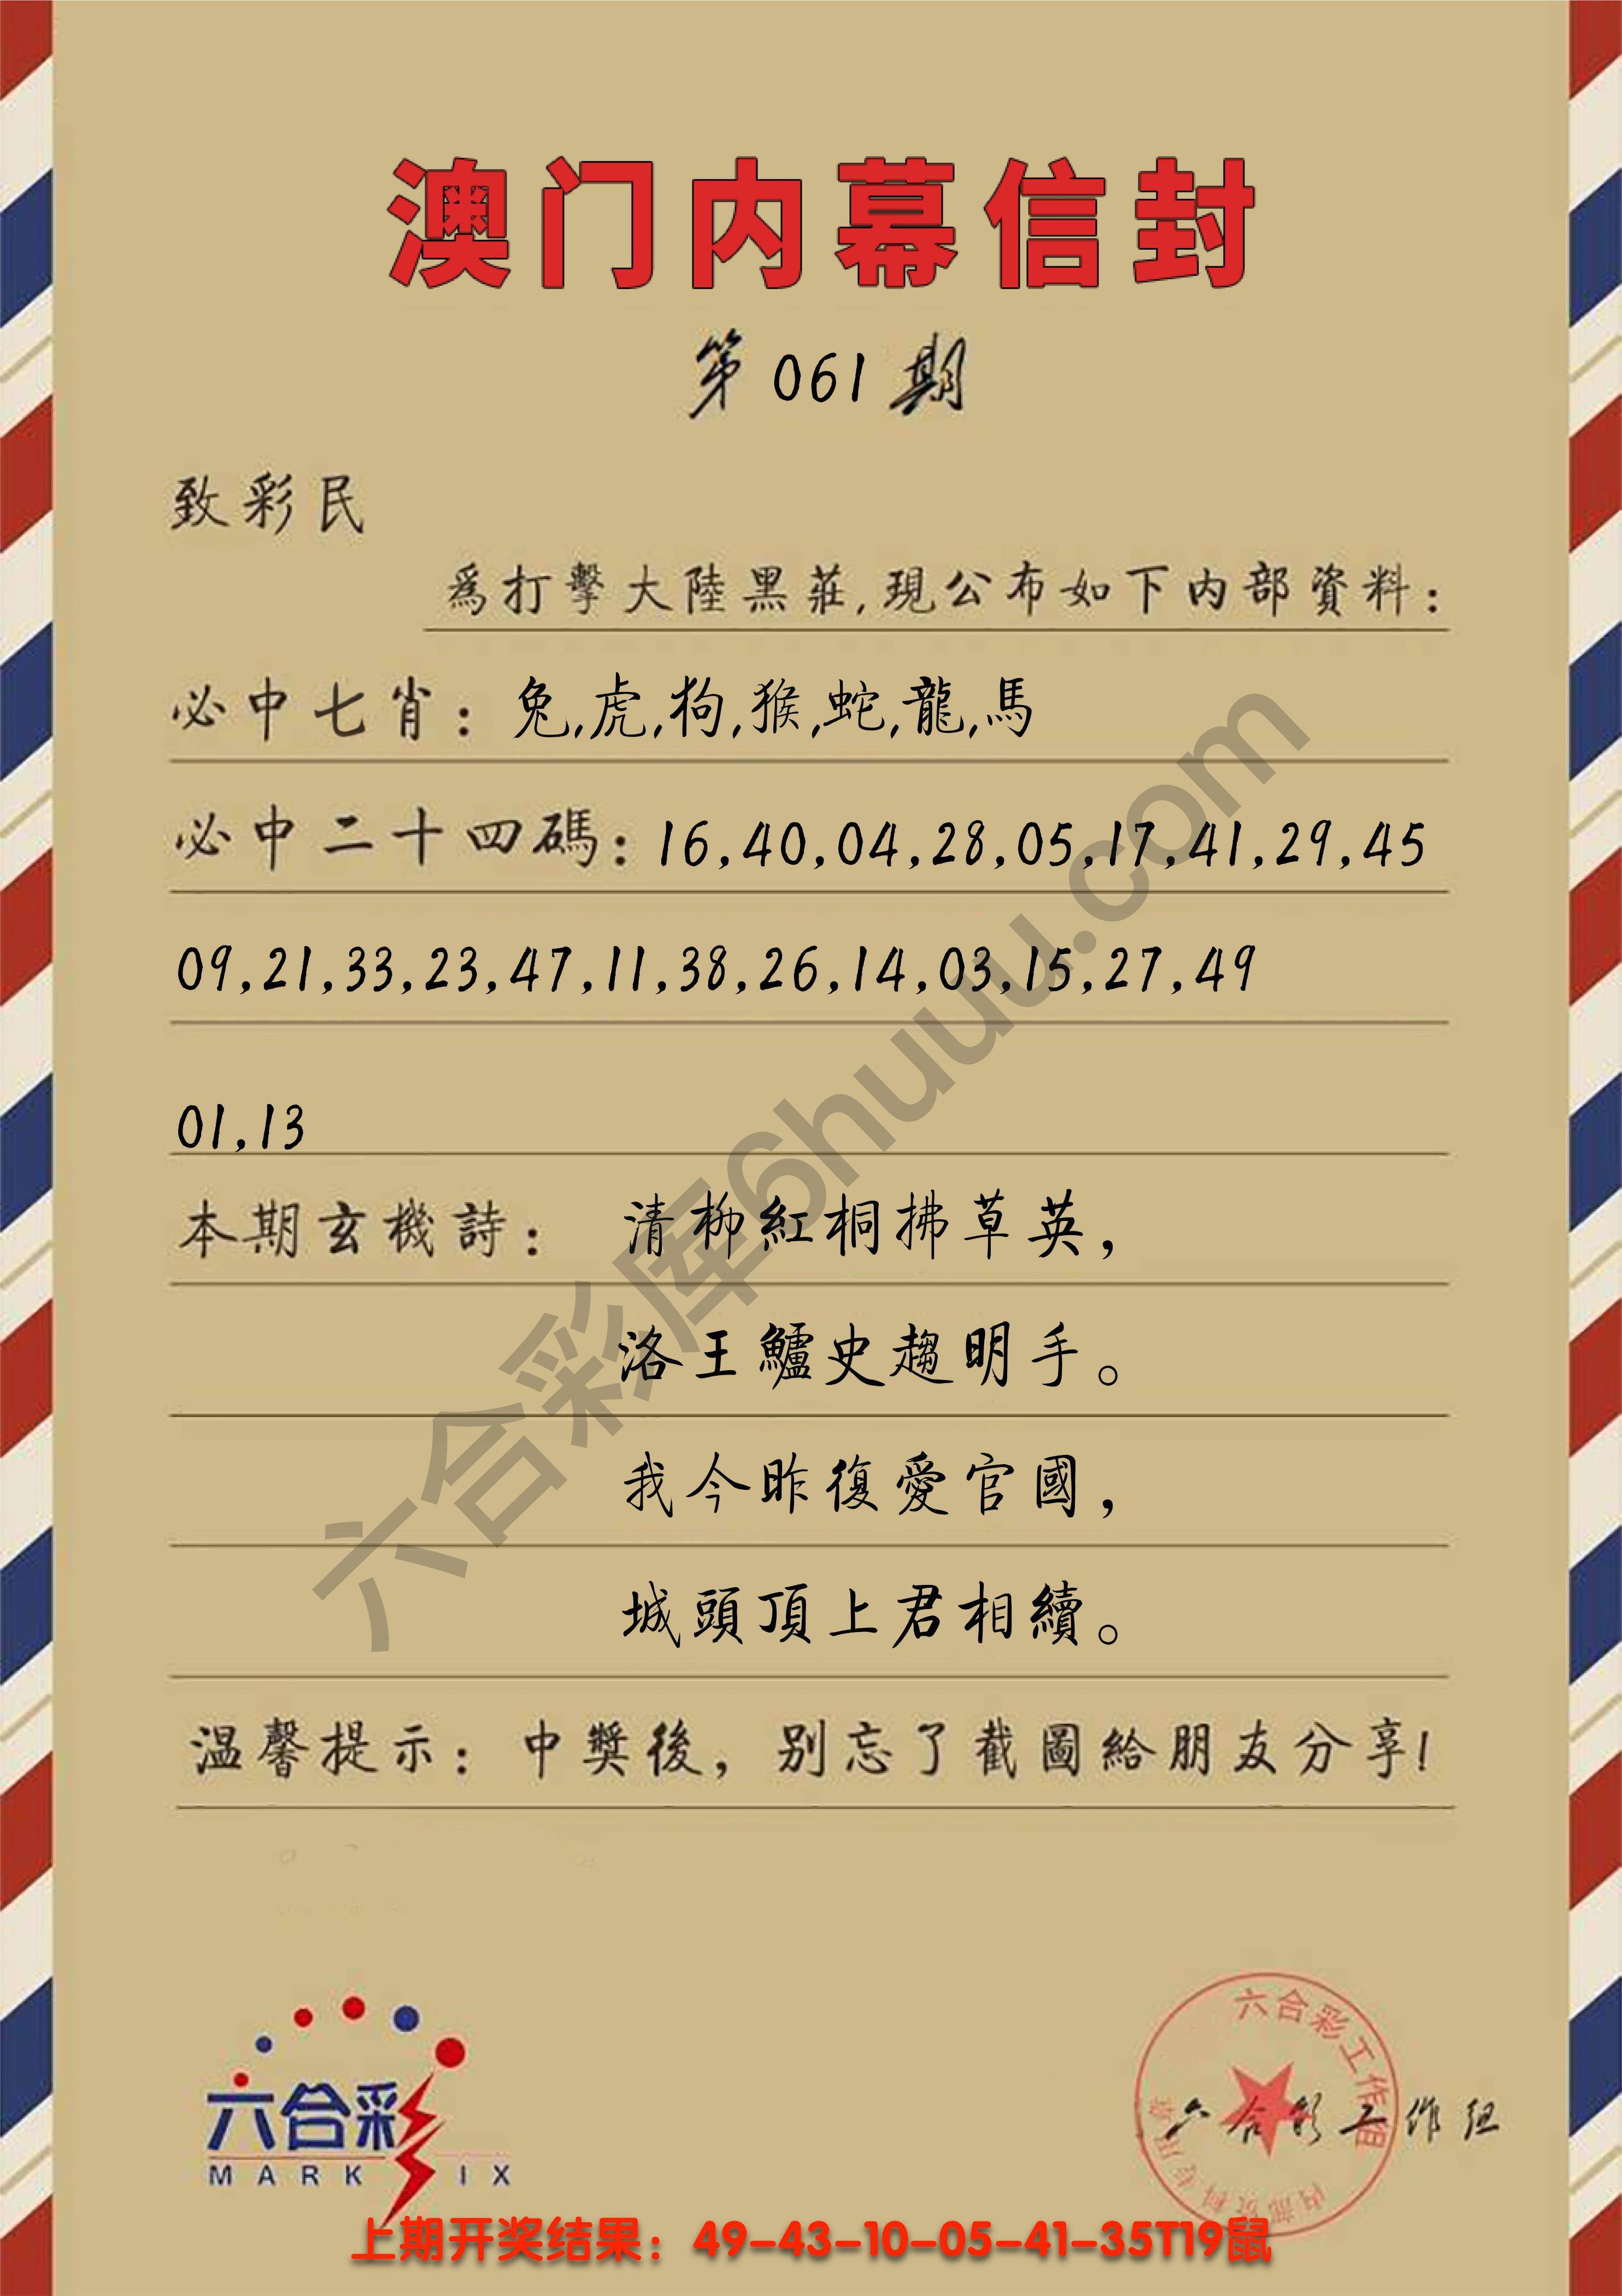 澳门内幕信封
第061期
致彩民
爲打擊大陸黑莊,現公布如下内部資料：
必中七肖：兔,虎,狗,猴,蛇,龍,馬
必中二十四碼：16,40,04,28,05,17,41,29,45
09,21,33,23,47,11,38,26,14,03,15,27,49
01,13
本期玄機詩： 清柳紅桐拂草英，
洛王鱸史趨明手。
我今昨復愛官國，
城頭頂上君相續。
温馨提示：中獎後，别忘了截圖給朋友分享！
六合彩库6huuu.com
六合彩
MARK SIX
六合彩工作组
内部资料专用章
六合彩工作组
上期开奖结果：49-43-10-05-41-35T19鼠